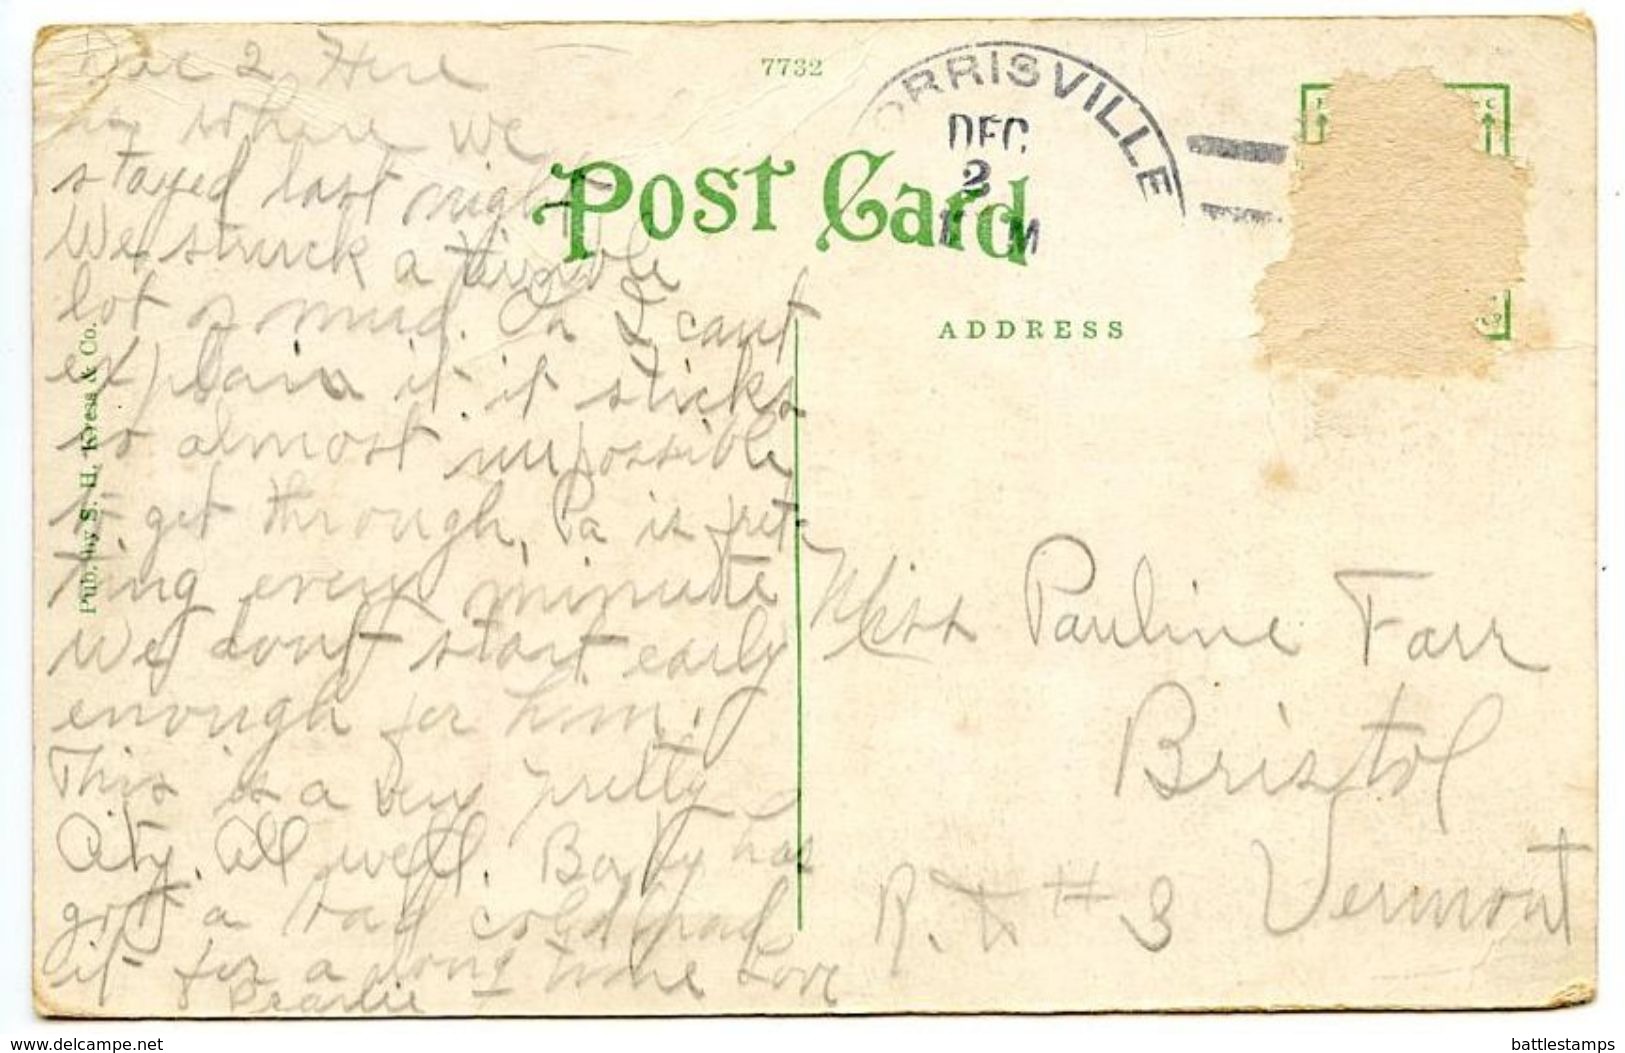 Dec 2, Here
is where we
stayed last night
We struck a terrible
lot of mud. Oh I cant
explain it it sticks
so almost impossible
to get through, Pa is fret-
ting every minute
We dont start early
enough for him.
This is a very pretty
City. All well. Baby has
got a bad cold had
it for a long time Love
Pearlie
Pub. by S. H. Kress & Co.
7732
POST CARD
ORRISVILLE
DEC
2
M
ADDRESS
Miss Pauline Farr
Bristol
Vermont
R. # 3
delcampe.net
battlestamps